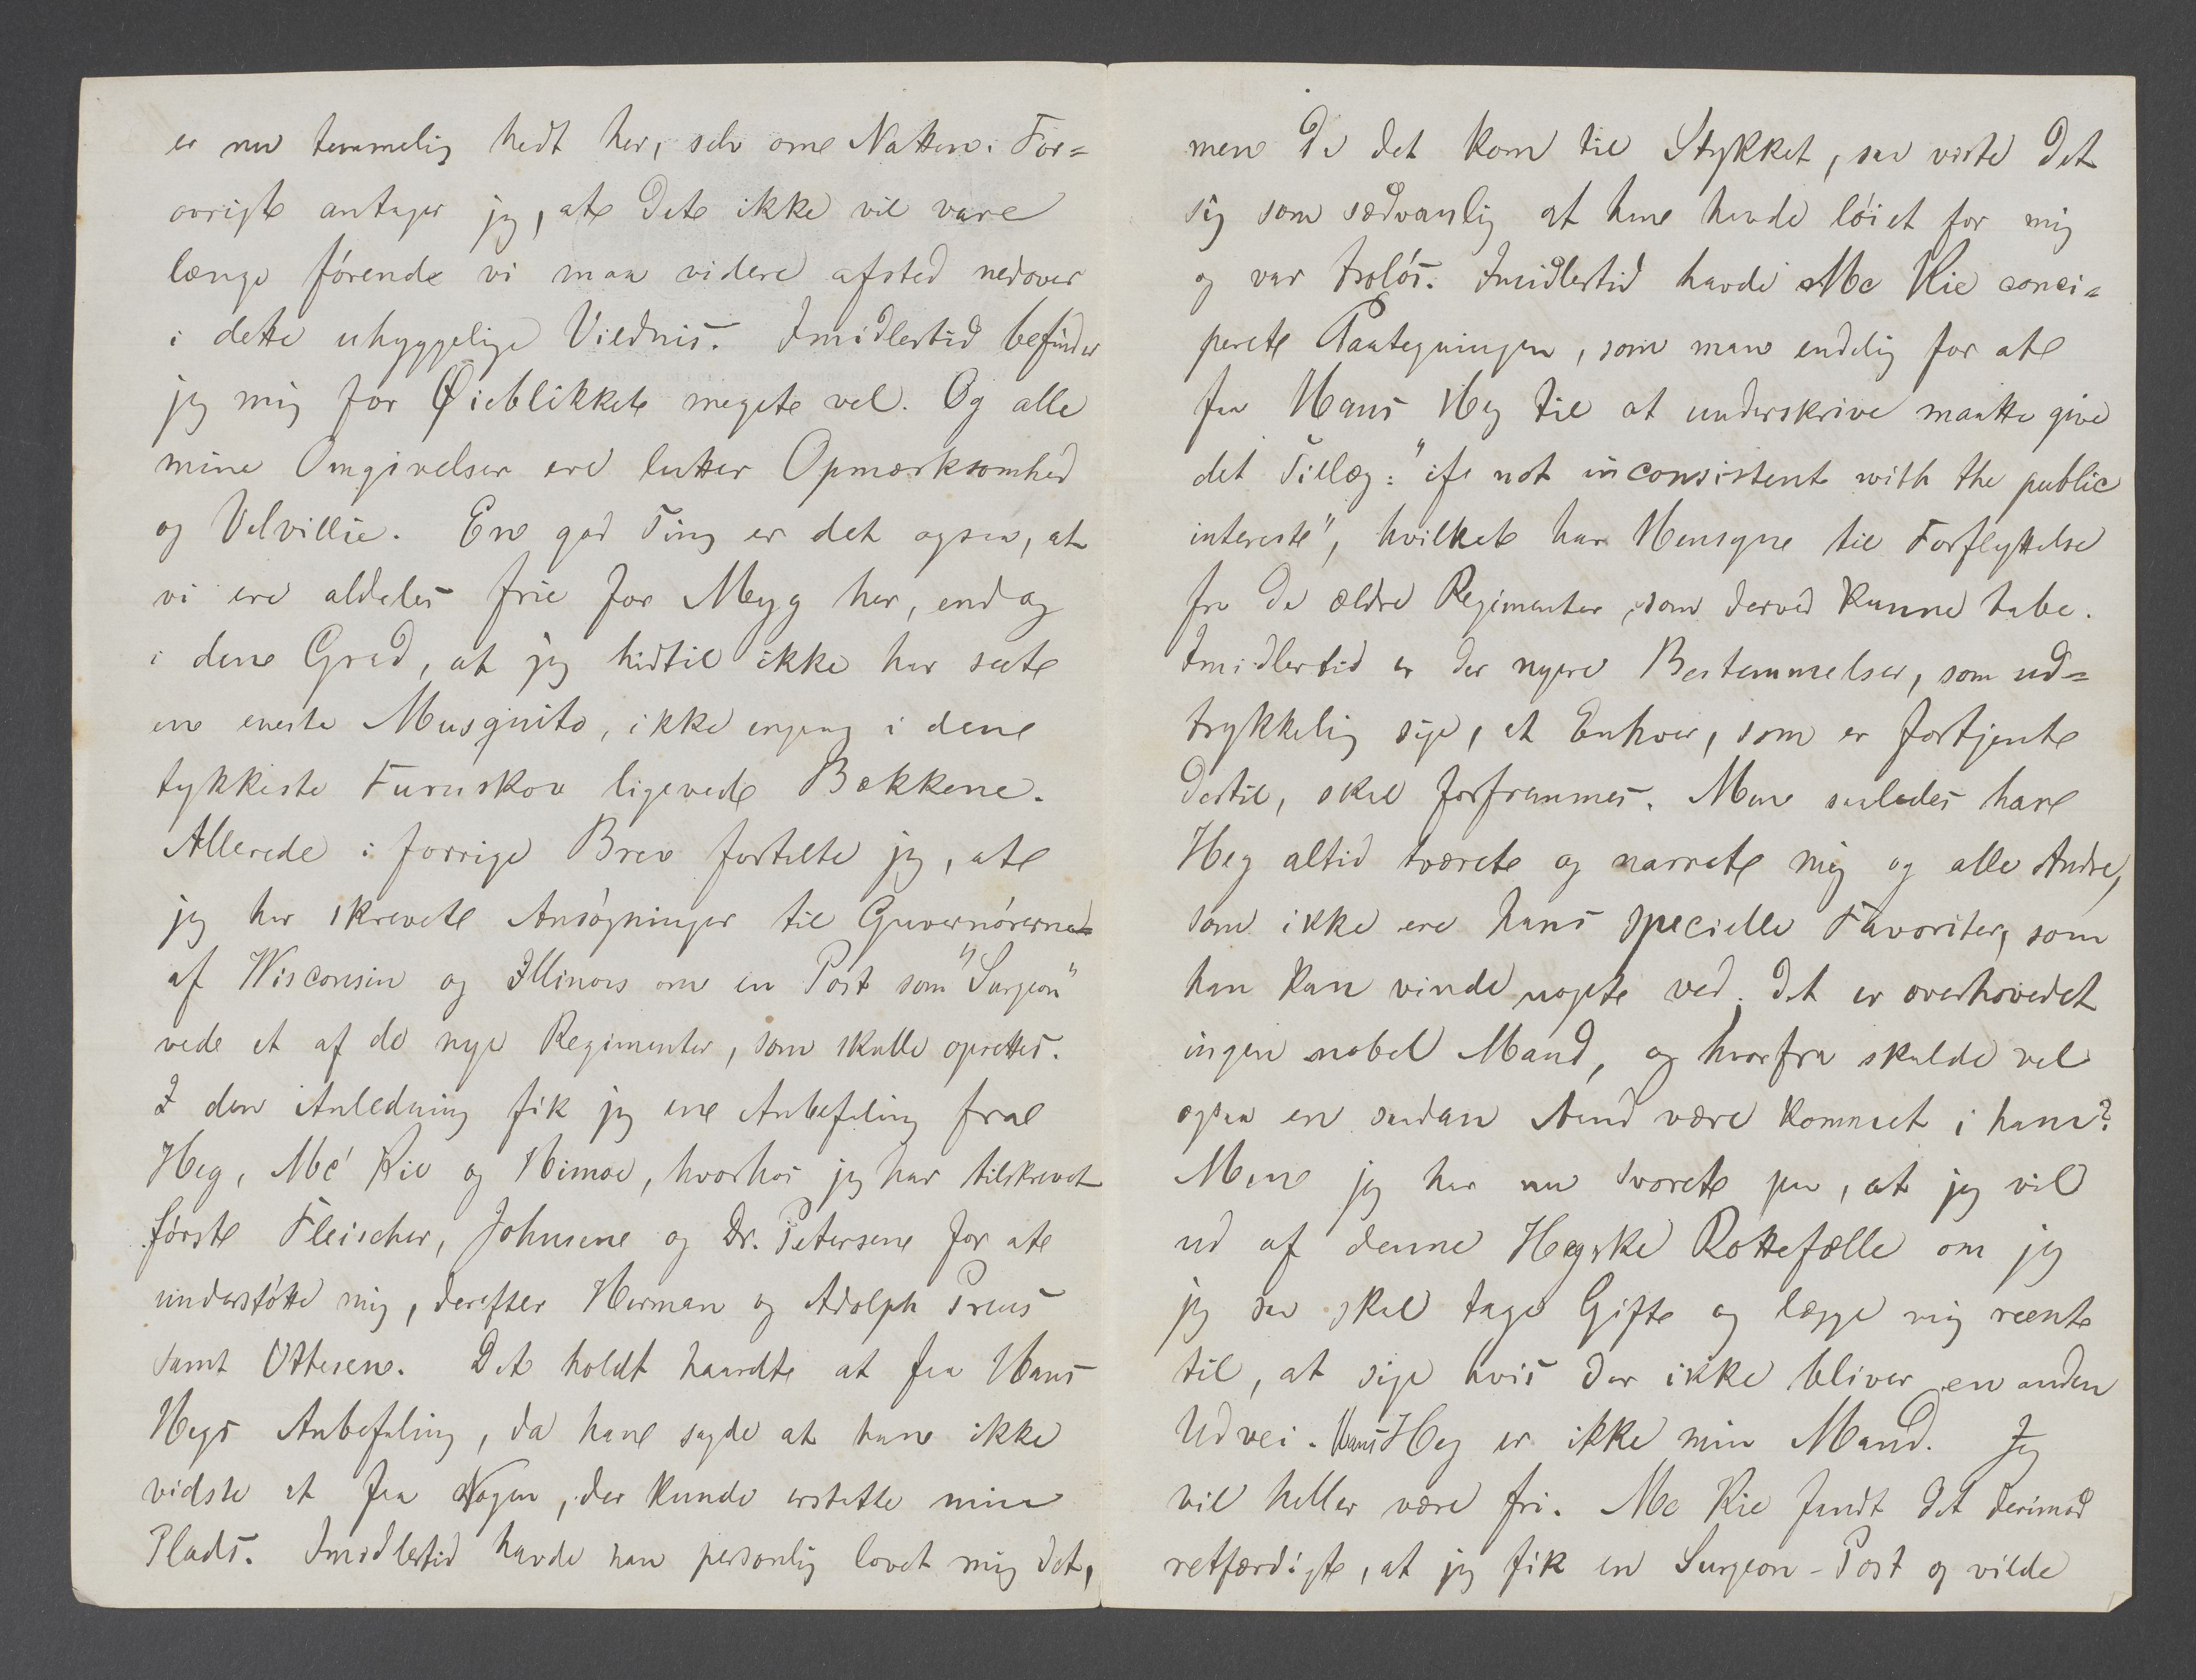 er nu temmelig hedt her, selv om Natten. For=
øvrigt antager jeg, at det ikke vil vare
længe førend vi maa videre afsted nedover
i dette uhyggelige Vildnis. Imidlertid befinder
jeg mig for Øieblikket meget vel. Og alle
mine Omgivelser ere lutter Opmærksomhed
og Velvillie. En god Ting er det ogsaa, at
vi ere aldeles frie for Myg her, endog
i den Grad, at jeg hidtil ikke har seet
en eneste Musquito, ikke engang i den
tykkeste Furuskov ligeved Bækkene.
Allerede i forrige Brev fortalte jeg, at
jeg har skrevet Ansøgninger til Guvernørerne
af Wisconsin og Illinois om en Post som "Surgeon"
ved et af de nye Regimenter, som skulle oprettes.
I den Anledning fik jeg en Anbefaling fra
Heg, Mc Kie og Himoe, hvorhos jeg har tilskrevet
først Fleischer, Johnsen og Dr. Petersen for at
understøtte mig, derefter Herman og Adolph Preus
samt Ottesen. Det holdt haardt at faa Hans
Hegs Anbefaling, da han sagde at han ikke
vidste at faa Nogen, der kunde erstatte min
Plads. Imidlertid havde han personlig lovet mig det,
men da det kom til Stykket, saa viste det
sig som sædvanlig at han havde løiet for mig
og var troløs. Imidlertid havde Mc Kie conci=
peret Paategningen, som man endelig for at
faa Hans Heg til at underskrive maatte give
det Tillæg: "if not inconsistent with the public
interest", hvilket har Hensyn til Forflyttelse
fra de ældre Regimenter, som derved kunne tabe.
Imidlertid er der nyere Bestemmelser, som ud=
trykkelig sige, at Enhver, som er fortjent
dertil, skal forfremmes. Men saaledes har
Heg altid tværet og narret mig og alle Andre,
som ikke ere hans specielle Favoriter, som
han kan vinde noget ved. Det er overhovedet
ingen nobel Mand, og hvorfra skulde vel
ogsaa en saadan Aand være kommet i ham?
Men jeg har nu svoret paa, at jeg vil
ud af denne Hegske Rottefælle om jeg
jeg saa skal tage Gift og lægge mig reent
til, at sige hvis der ikke bliver en anden
Udvei. Hans Heg er ikke min Mand. Jeg
vil heller være fri. Mc Kie fandt det derimod
retfærdigt, at jeg fik en Surgeon-Post og vilde